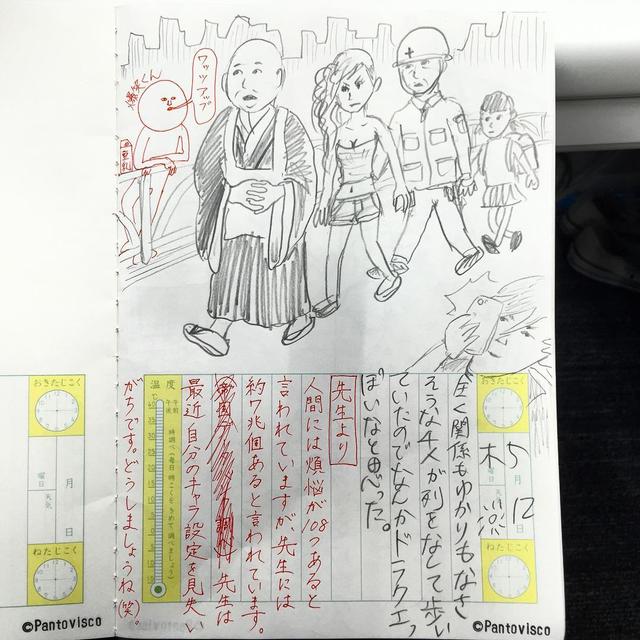 爆笑くん
ワッツアップ
豆乳
全く関係もゆかりもなさ
そうな4人が列をなして歩い
ていたのでなんかドラクエっ
ぽいなと思った。
先生より
人間には煩悩が108つあると
言われていますが先生には
約7兆個あると言われています。
先生は
最近自分のキャラ設定を見失い
がちです。どうしましょうね(笑)。
おきたじこく
5月12日
木曜日
天気
ねたじこく
温度
午前
午後
時調べ(毎日時こくをきめて調べましょう)
℃
40
35
30
25
20
15
10
5
0
5
10
おきたじこく
月
日
曜日
天気
ねたじこく
©Pantovisco
©Pantovisco